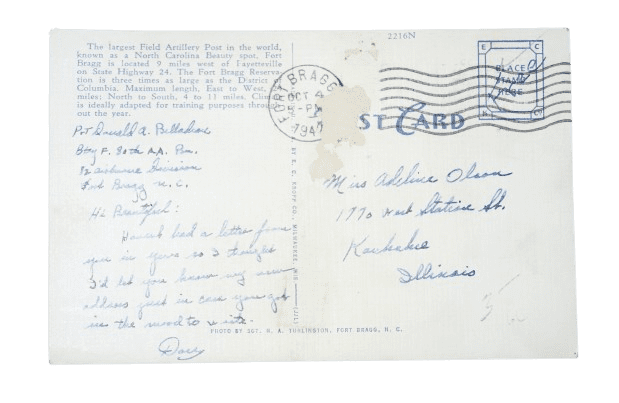 The largest Field Artillery Post in the world,
known as a North Carolina Beauty spot, Fort
Bragg is located 9 miles west of Fayetteville
on State Highway 24. The Fort Bragg Reserva-
tion is three times as large as the District of
Columbia. Maximum length, East to West,
miles; North to South, 4 to 11 miles. Climate
is ideally adapted for training purposes through-
out the year.
2216N
PLACE
STAMP
HERE
FORT BRAGG
OCT 4
5-PM
ST CARD
Pvt Donald A.
Bty F. 80th AA. Bn.
Airborne Division
Fort Bragg N.C.
Hi Beautiful:
Haven't had a letter from
you in years so I thought
I'd let you know my new
address just in case you get
in the mood to write.
Miss Adeline Olson
1770 West Station St.
Kankakee
Illinois
PHOTO BY SGT. R. A. TOMLINSON, FORT BRAGG, N. C.